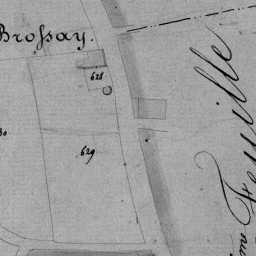 Brossay.
628
629
me Feuille